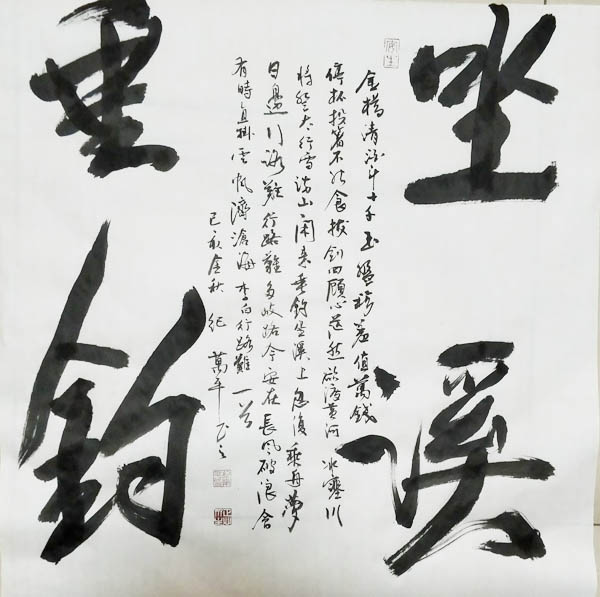 坐溪
金樽清酒斗十千玉盤珍羞值萬錢
停杯投箸不能食拔劍四顧心茫然欲渡黃河冰塞川
將登太行雪滿山閑來垂釣坐溪上忽復乘舟夢
日邊行路難行路難多歧路今安在長風破浪會
有時直掛雲帆濟滄海李白行路難一首
己亥金秋 紀萬平
垂釣